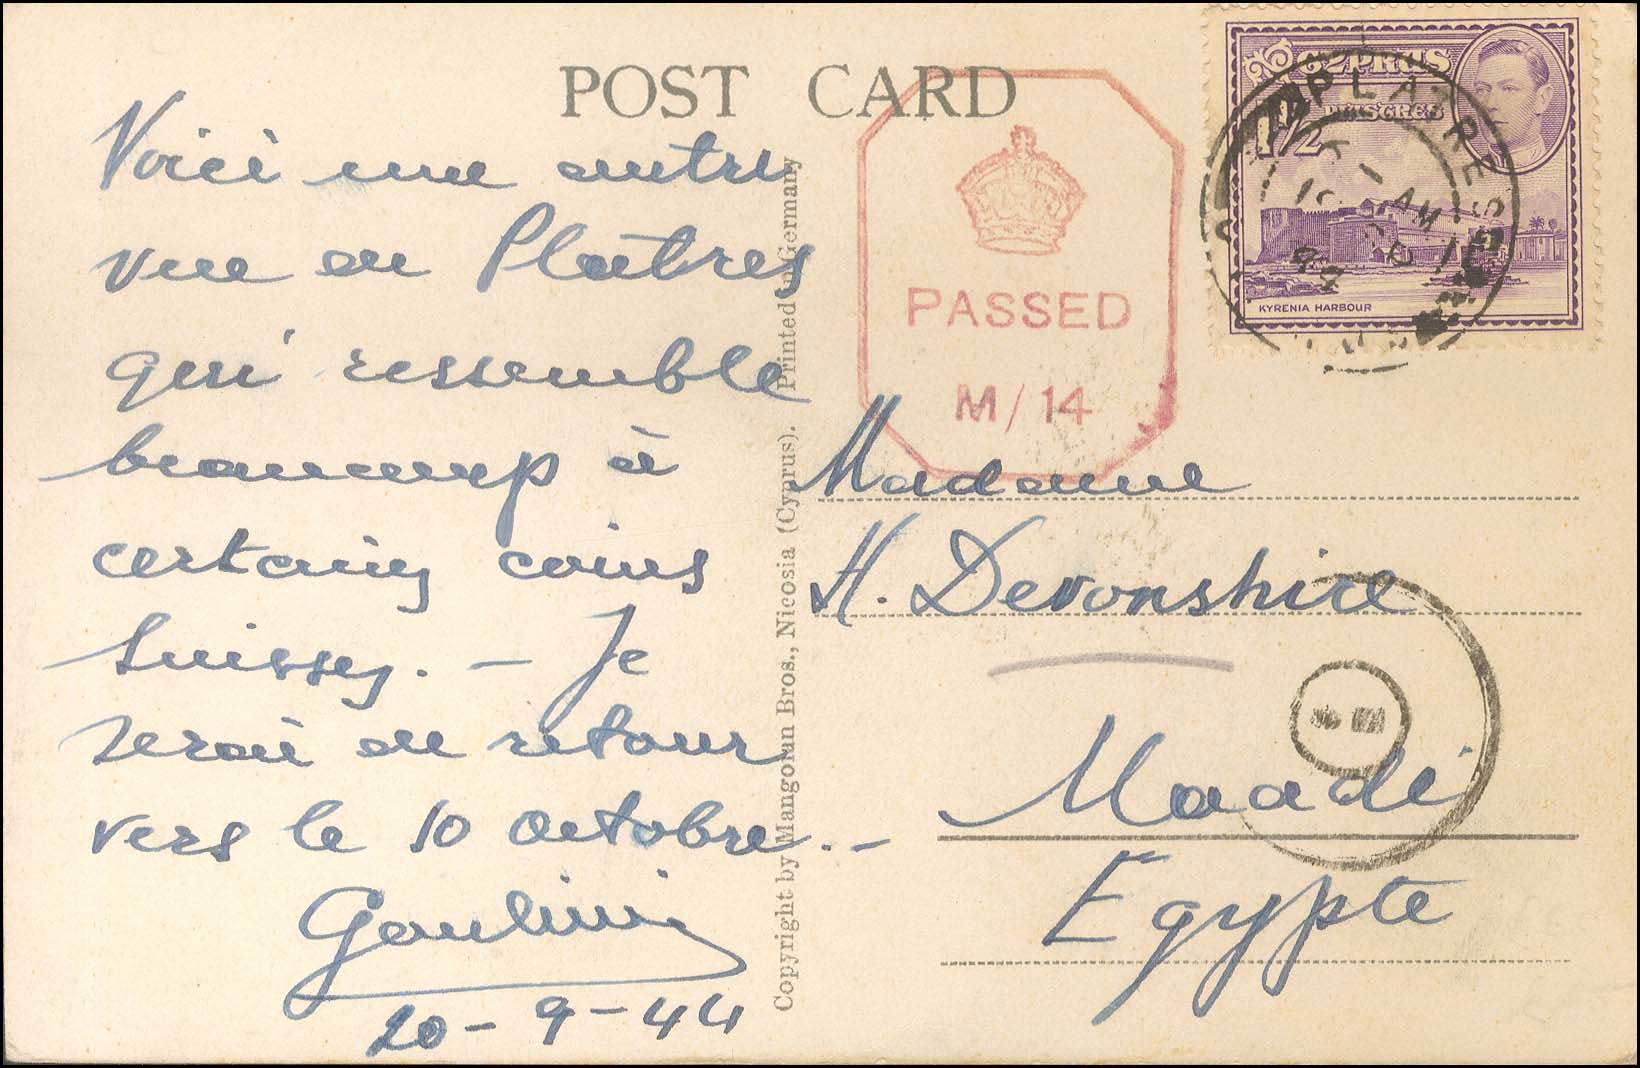 POST CARD
Voici une autre
vue de Platres
qui ressemble
beaucoup à
certains coins
Suisses. – Je
serai de retour
vers le 10 Octobre. –
20-9-44
Copyright by Mangoian Bros., Nicosia (Cyprus). Printed in Germany
PASSED
M/14
CYPRUS
1½ PIASTRES
KYRENIA HARBOUR
PLATRES
AM
Madame
H. Devonshire
Maadi
Egypte